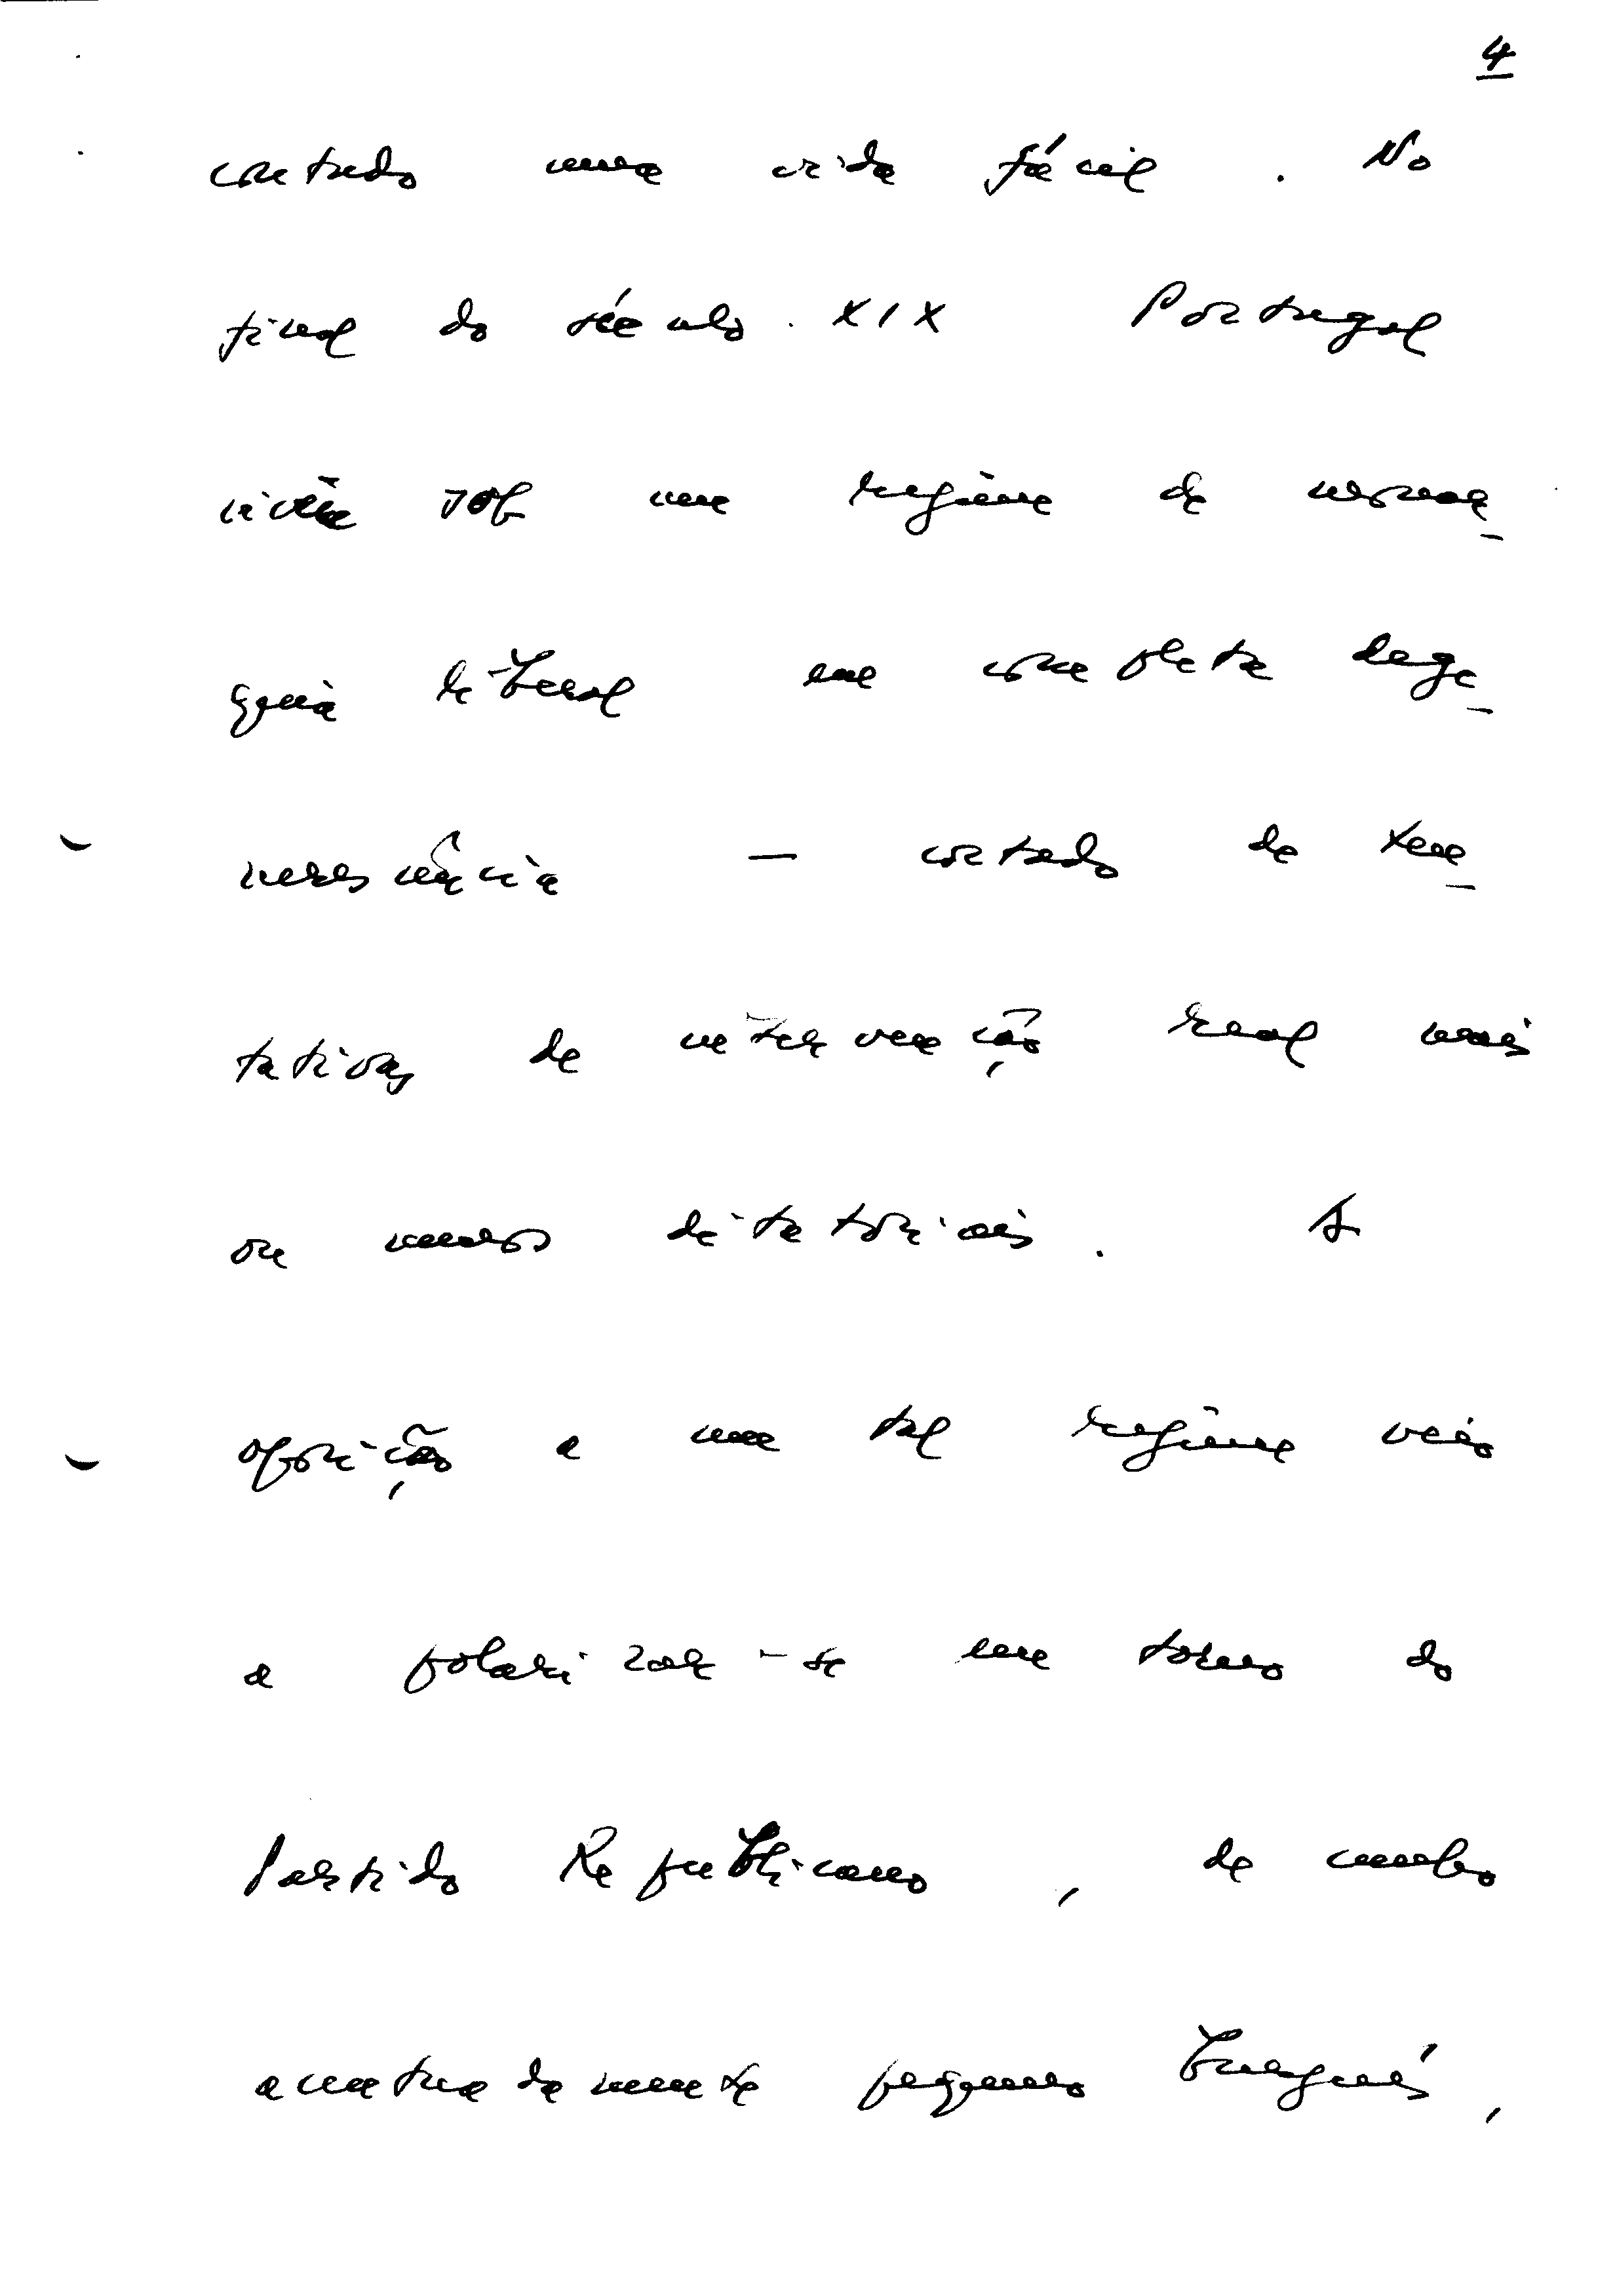 4
contudo uma vida fácil. No
final do século XIX Portugal
vivia sob um regime de monar-
quia liberal em completa dege-
nerescência — cortado de ten-
tativas de intervenção real mais
ou menos ditatoriais. A
oposição a um tal regime veio
a polarizar-se em torno do
Partido Republicano, de cunho
acentuadamente pequeno burguês,